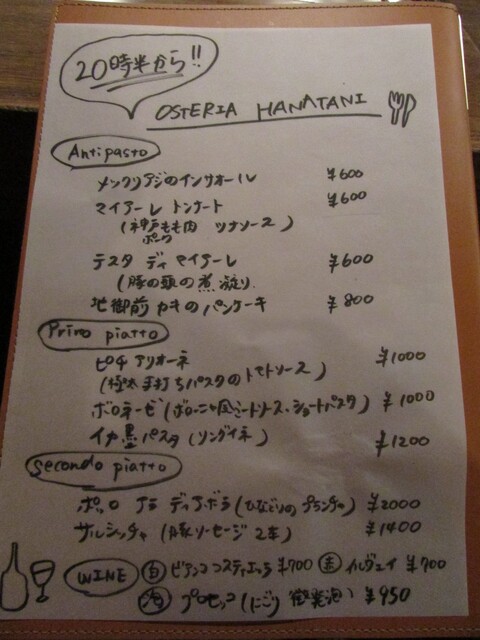 20時半から!!
OSTERIA HANATANI
Antipasto
メックリアジのインサオール ¥600
マイアーレ トンナート ¥600
(神戸もも肉 ツナソース)
ポーク
テスタ ディ マイアーレ ¥600
(豚の頭の煮凝り
地御前カキのパンケーキ ¥800
Primo piatto
ピチ アリオーネ ¥1000
(極太手打ちパスタのトマトソース)
ボロネーゼ(ボローニャ風ミートソース・ショートパスタ) ¥1000
イカ墨パスタ(リングイネ) ¥1200
Secondo piatto
ポッロ アラ ディアボラ(ひなどりのプランチャ) ¥2000
サルシッチャ(豚ソーセージ2本) ¥1400
WINE 白 ビアンコ コスティエッラ ¥700 赤 ¥700
泡 プロセッコ(にごり 微発泡) ¥950